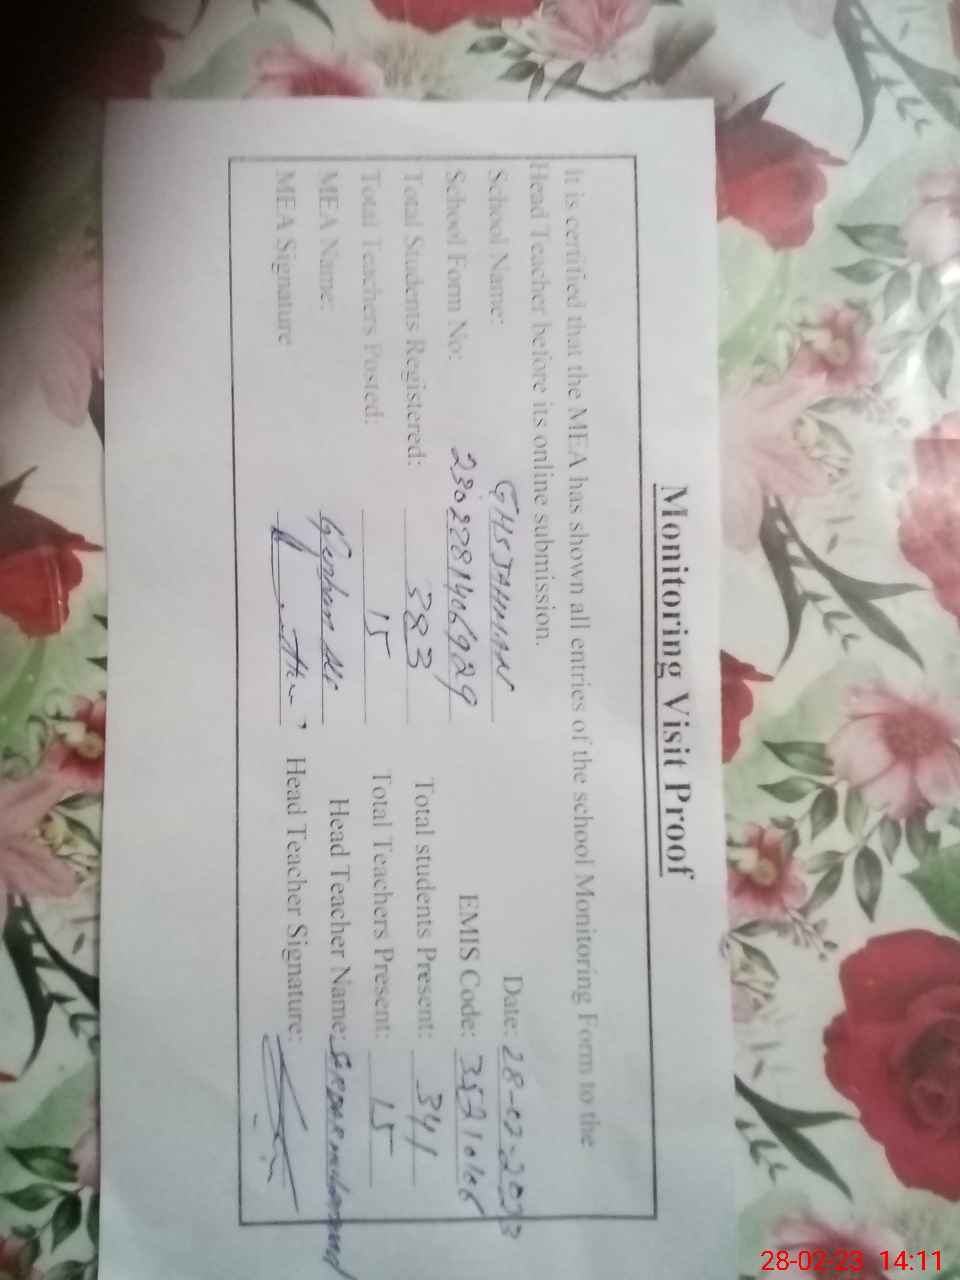 Monitoring Visit Proof
It is certified that the MEA has shown all entries of the school Monitoring Form to the
Head Teacher before its online submission.
School Name: GHS JAHNIAN Date: 28-02-2023
School Form No: 2302281406929 EMIS Code:
Total Students Registered: 383 Total students Present: 341
Total Teachers Posted: 15 Total Teachers Present: 15
MEA Name: Head Teacher Name:
MEA Signature Head Teacher Signature:
28-02-23 14:11